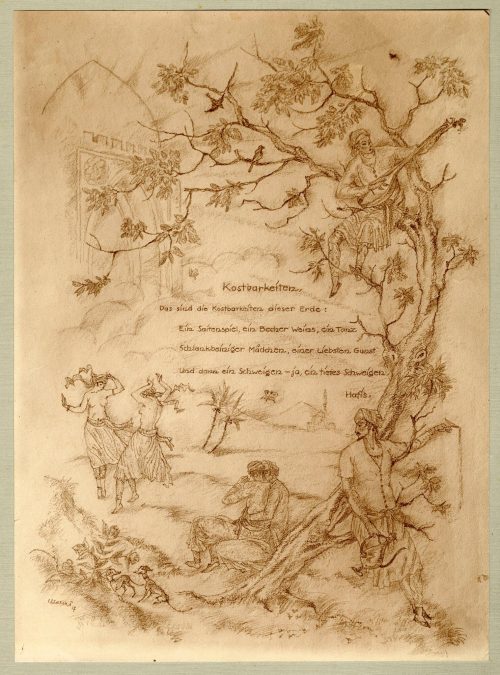 Kostbarkeiten.
Das sind die Kostbarkeiten dieser Erde:
Ein Saitenspiel, ein Becher Weins, ein Tanz
Schlankbeiniger Mädchen, einer Liebsten Gunst
Und dann ein Schweigen – ja, ein tiefes Schweigen.
Hafis.